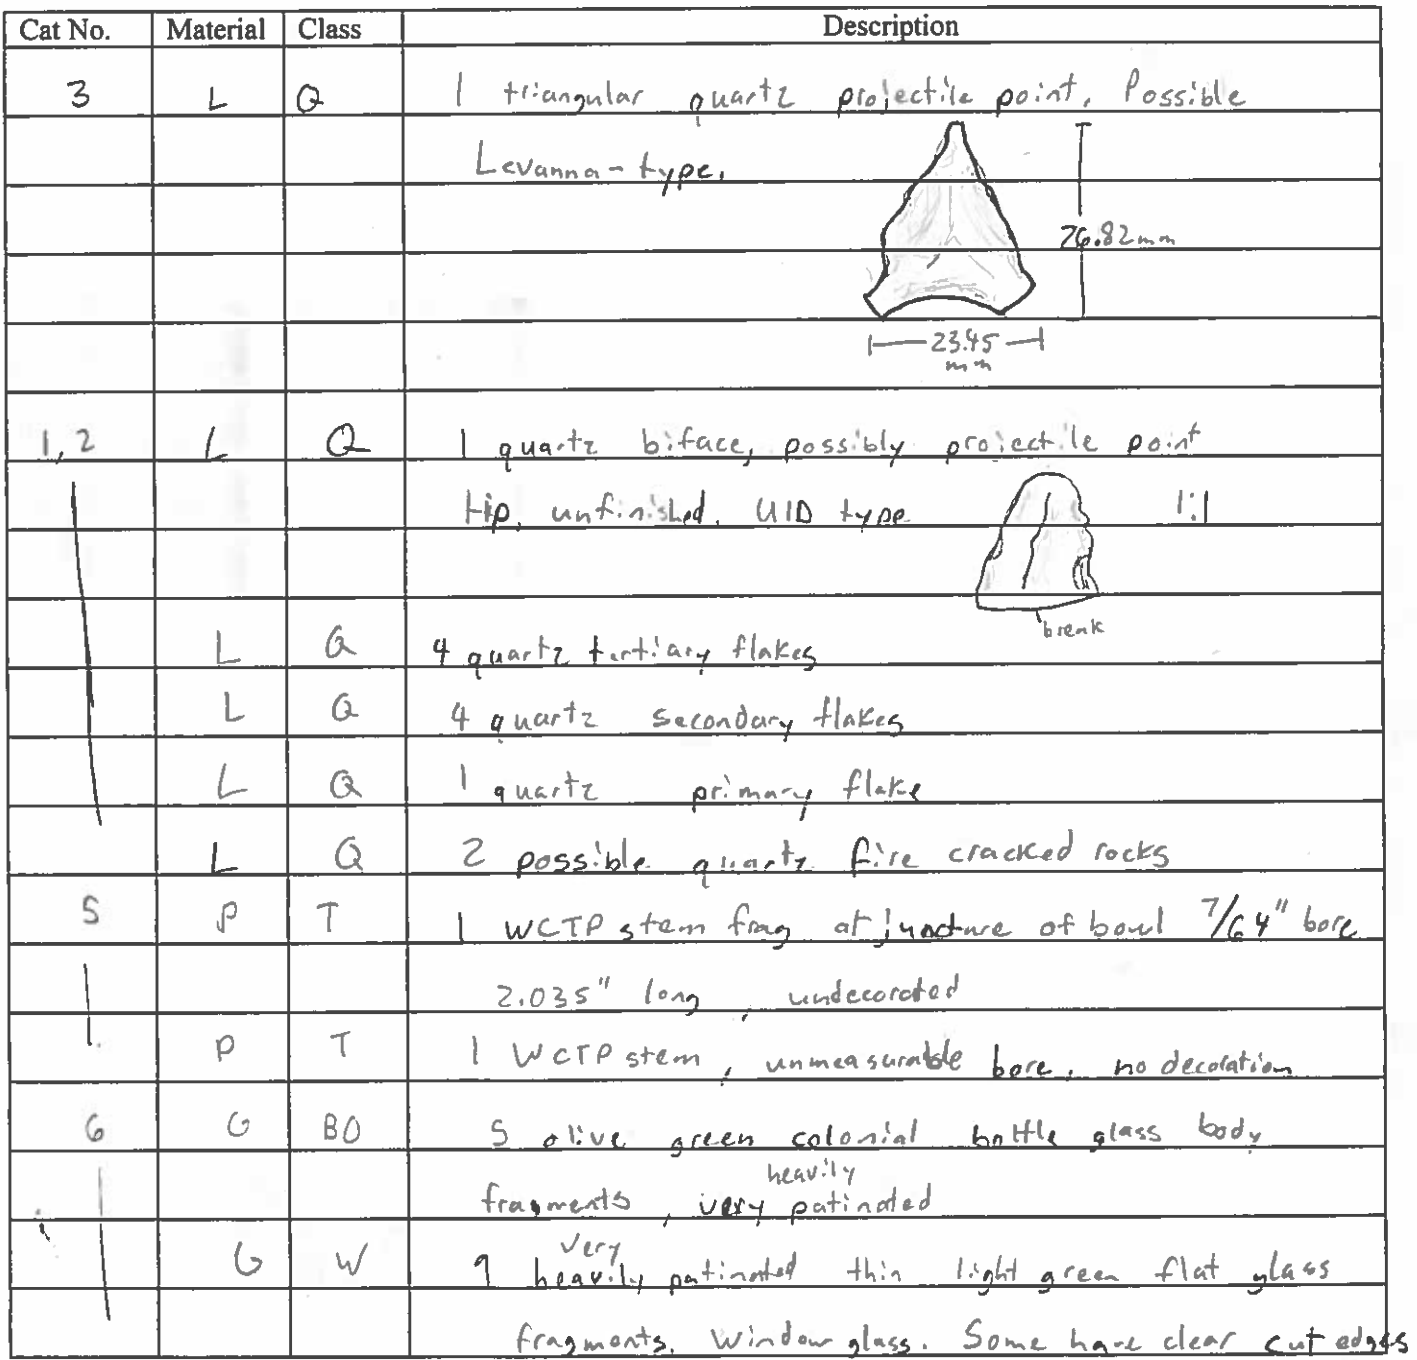 Cat No. Material Class Description
3 L Q 1 triangular quartz projectile point. Possible
Levanna-type.
26.82mm
23.45
mm
1,2 L Q 1 quartz biface, possibly projectile point
tip, unfinished. UID type 1:1
break
L Q 4 quartz tertiary flakes
L Q 4 quartz secondary flakes
L Q 1 quartz primary flake
L Q 2 possible quartz fire cracked rocks
5 P T 1 WCTP stem frag at juncture of bowl 7/64" bore
2.035" long, undecorated
P T 1 WCTP stem, unmeasurable bore, no decoration
6 G BO 5 olive green colonial bottle glass body
heavily
fragments, very patinated
very
G W 9 heavily patinated thin light green flat glass
fragments. Window glass. Some have clear cut edges